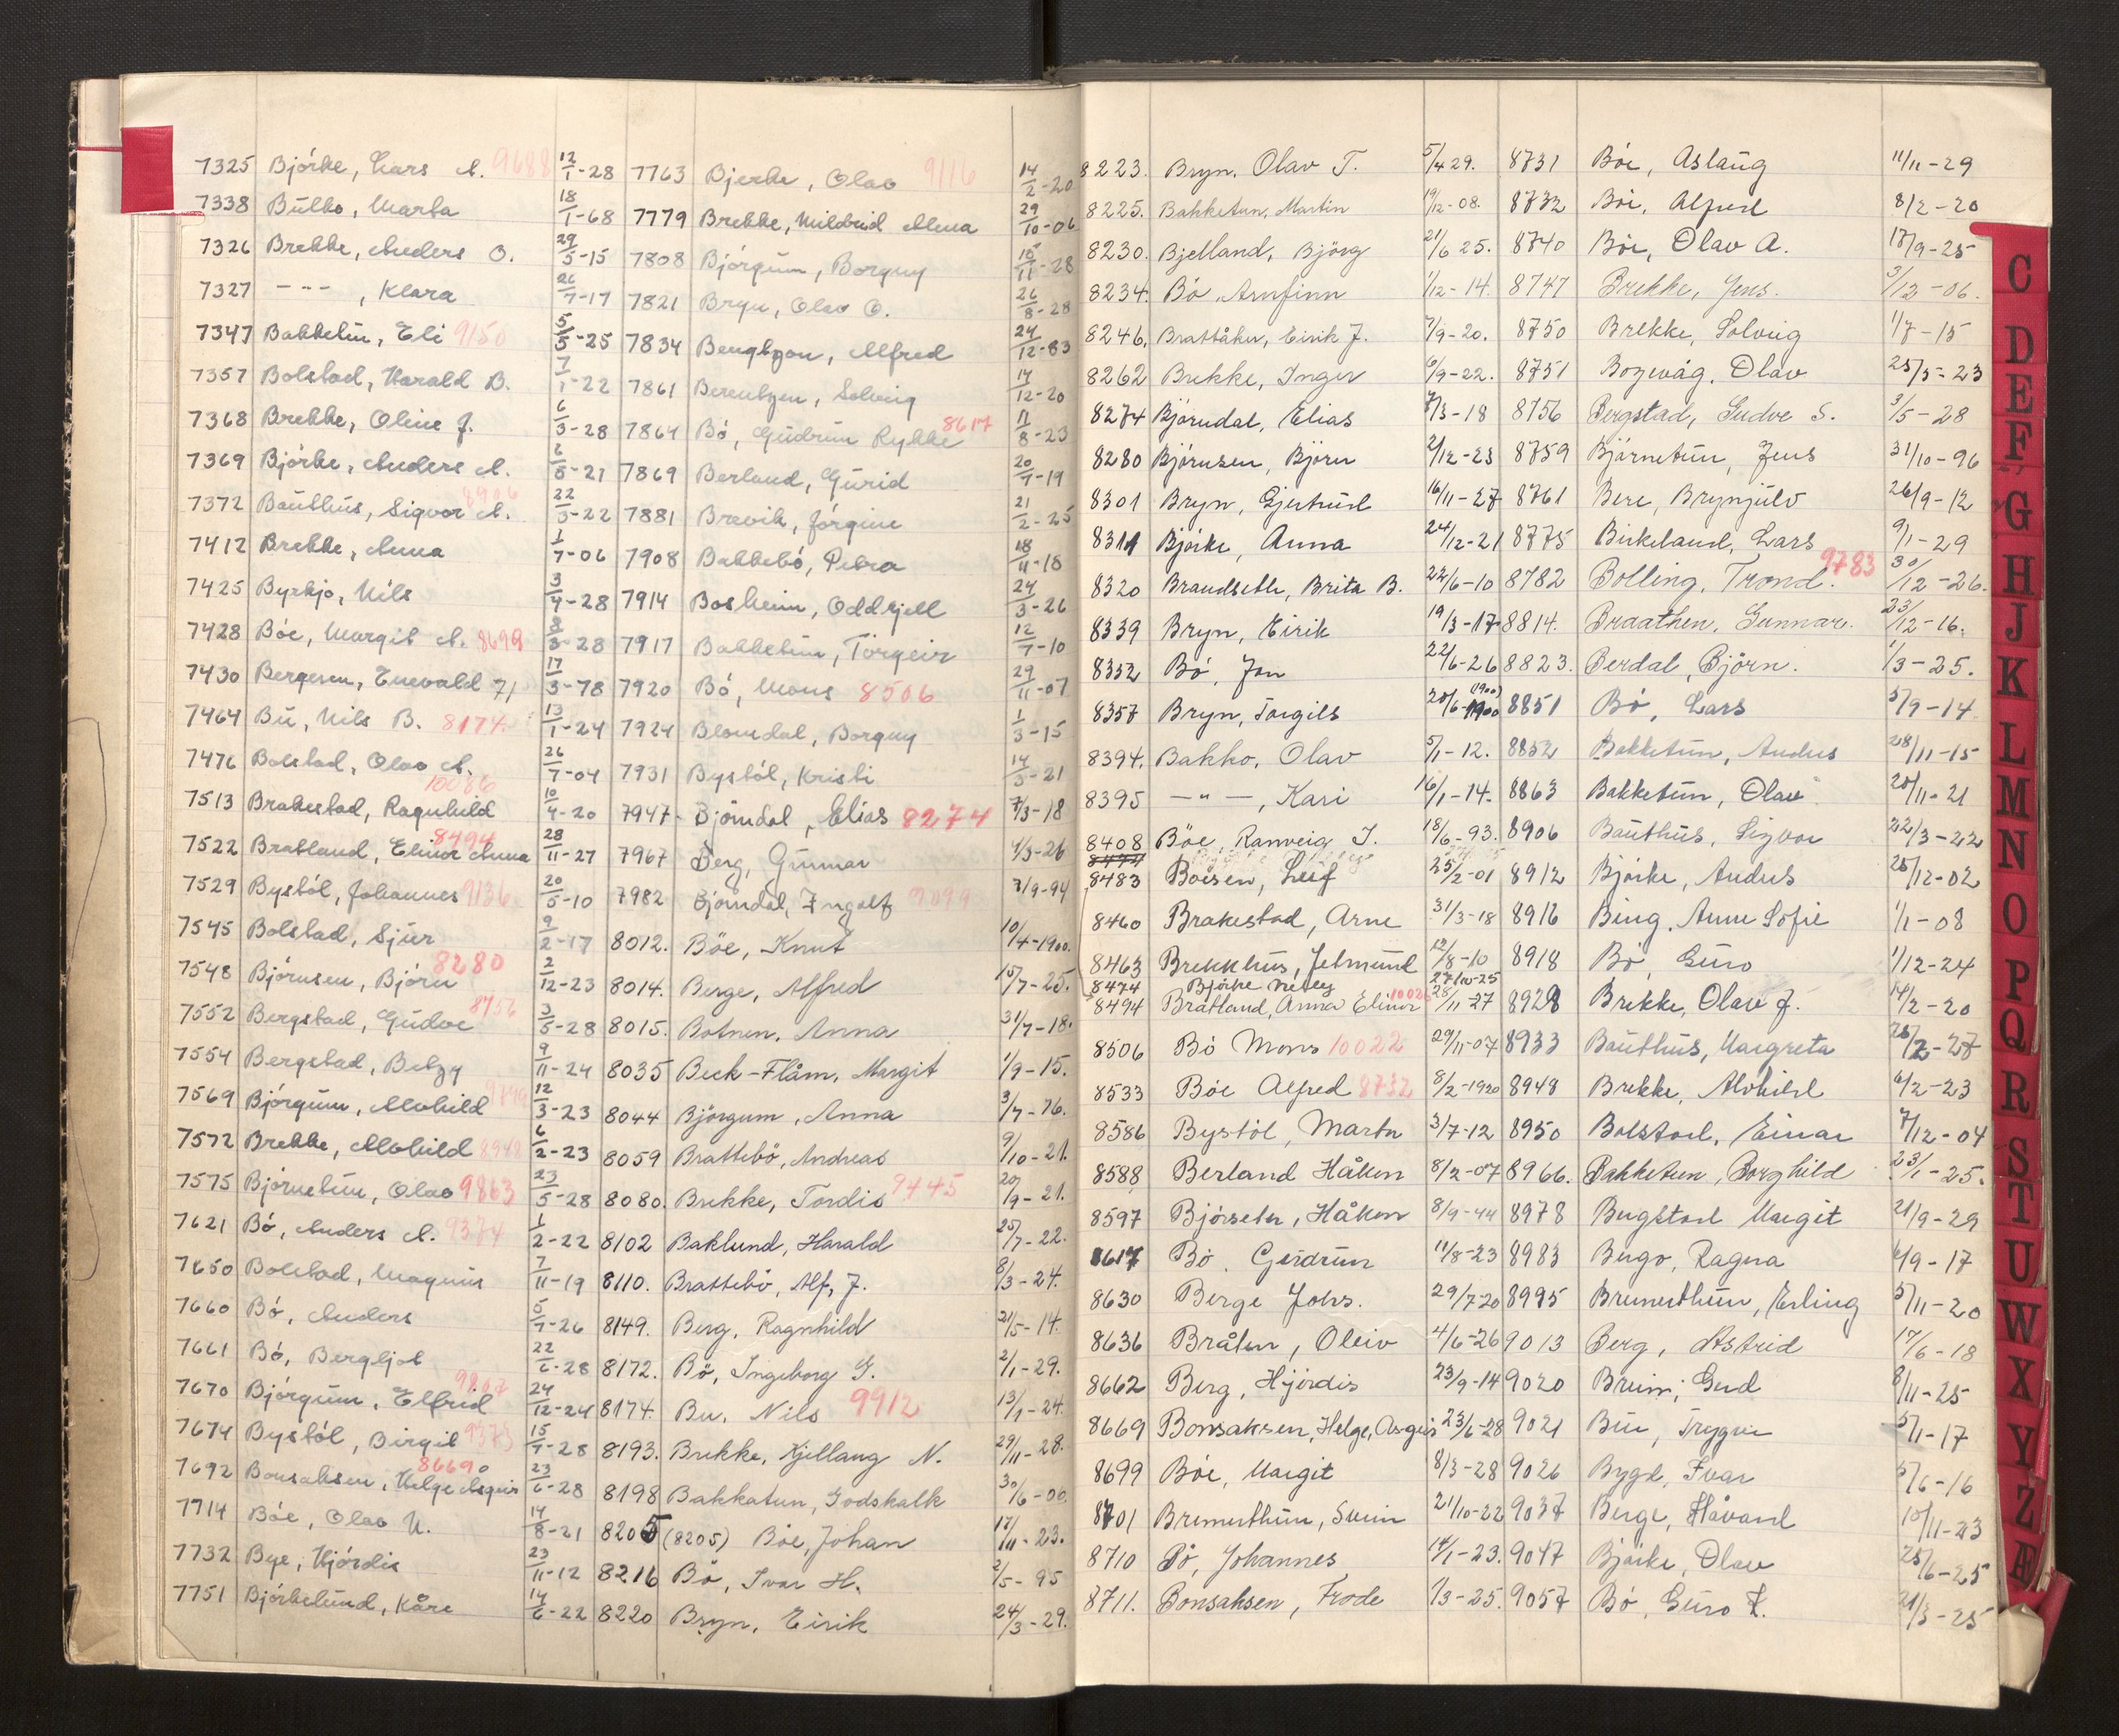 7325 Bjórke, Lars A. 9688 12/1-28
7338 Bulko, Marta 18/1-68
7326 Brekke, Anders O. 29/5-15
7327 -"- , Klara 26/7-17
7347 Bakketun, Eli 9150 5/5-25
7357 Bolstad, Harald B. 7/1-22
7368 Brekke, Oline J. 6/3-28
7369 Bjórke, Anders A. 6/5-21
7372 Bauthus, Sigvor A. 8906 22/3-22
7412 Brekke, Anna 1/7-06
7425 Byrkjo, Nils 3/4-28
7428 Bóe, Margit A. 8699 8/3-28
7430 Bergesen, Enevald 71 17/3-78
7464 Bu, Nils B. 8174 13/1-24
7476 Bolstad, Olav A. 26/7-04
7513 Brakestad, Ragnhild 10086 10/4-20
7522 Bratland, Elinor Anna 8494 28/11-27
7529 Bystól, Johannes 9136 20/5-10
7545 Bolstad, Sjur 9/2-17
7548 Bjórnsen, Bjórn 8280 2/12-23
7552 Bergstad, Gudve 8756 3/5-28
7554 Bergstad, Betzy 9/11-24
7569 Bjórgum, Alvhild 12/3-23
7572 Brekke, Alvhild 8948 6/2-23
7575 Bjórnetun, Olav 9863 23/5-28
7621 Bó, Anders A. 9374 1/2-22
7650 Bolstad, Magnus 7/11-19
7660 Bó, Anders 5/7-26
7661 Bó, Bergljot 22/6-28
7670 Bjórgum, Elfrid 9807 24/12-24
7674 Bystól, Birgit 9373 15/7-28
7692 Bonsaksen, Helge Asgeir 8669 23/6-28
7714 Bóe, Olav N. 14/8-21
7732 Bye, Hjórdis 23/11-12
7751 Bjórkelund, Kåre 14/6-22
7763 Bjerke, Olav 9116 14/2-20
7779 Brekke, Mildrid Alma 29/10-06
7808 Bjórgum, Borguy 15/11-28
7821 Bryn, Olav O. 26/8-28
7834 Bengtzon, Alfred 24/12-83
7861 Berentzen, Solveig 14/12-20
7864 Bó, Gudrun Rykke 8617 11/8-23
7869 Berland, Gurid 20/7-19
7881 Brevik, Jórgine 21/2-25
7908 Bakkebó, Petra 18/11-18
7914 Bosheim, Oddkjell 24/3-26
7917 Bakketun, Torgeir 12/7-10
7920 Bó, Mons 8506 29/11-07
7924 Blomdal, Borguy 1/3-15
7931 Bystól, Kristi 14/5-21
7947 Bjórndal, Elias 8274 7/3-18
7967 Berg, Gunnar 4/3-26
7982 Bjórndal, Ingolf 9099 7/9-94
8012. Böe, Knut 10/4-1900.
8014. Berge, Alfred 15/7-25.
8015. Botnen, Anna 31/7-18.
8035 Beck-Flåm, Margit 1/9-15.
8044 Bjórgum, Anna 3/7-76.
8059 Brattebö, Andreas 9/10-21.
8080. Brekke, Tordis 9445 20/9-21.
8102 Baklund, Harald 25/7-22.
8110. Brattebö, Alf, J. 8/3-24.
8149. Berg, Ragnhild 21/5-14.
8172. Bö, Ingeborg G. 2/1-29.
8174. Bu, Nils 9912 13/1-24.
8193. Brekke, Kjellaug N. 29/11-28.
8198 Bakkatun, Godskalk 30/6-00.
8205 (8205) Böe, Johan 17/11-23.
8216 Bö, Ivar H. 2/5-95
8220 Bryn, Eirik 24/3-29.
8223. Bryn, Olav T. 5/4 29.
8225. Bakketun, Martin 19/12-08.
8230. Bjelland, Bjórg 21/6 25.
8234. Bö, Arnfinn 1/12-14.
8246. Brattåker, Eirik J. 7/9-20.
8262 Brekke, Inger 6/9-22.
8274 Bjórndal, Elias 7/3-18
8280 Bjórnsen, Björn 2/12-23
8301 Bryn, Gjertrud 16/11-27
8311 Bjórke, Anna 24/12-21
8320 Brandseth, Brita B. 22/6-10
8339 Bryn, Eirik 19/3-17
8352 Bó, Jon 22/6-26
8357 Bryn, Torgils 20/6-1900 (1900)
8394. Bakko, Olav 5/1-12.
8395 -"-, Kari 16/1-14.
8408 Böe, Ranveig I. 18/6-93.
8483 Boësen, Leif 25/2-01
8460 Brakestad, Arne 31/3-18
8463 Brekkhus, Jetmund 12/8-10
8474 Bjórke Neley 27/10-25
8494 Bratland, Anna Elinor 28/11-27
8506 Bó Mons 10022 29/11-07
8533 Böe Alfred 8732 8/2-1920
8586 Bystöl, Marta 3/7-12
8588 Berland Håkon 8/2-07
8597 Bjórseter, Håkon 8/9-44
8617 Bö, Gudrun 11/8-23
8630 Berge Johs. 29/7-20
8636 Bråten, Oleiv 4/6-26
8662 Berg, Hjördis 23/9-14
8669 Bonsaksen, Helge, Asgeir 23/6-28
8699 Böe, Margit 8/3-28
8701 Bremerthun, Svein 21/10-22
8710 Bö, Johannes 14/1-23.
8711. Bonsaksen, Frode 1/3-25.
8731 Böe, Aslaug 11/11-29
8732 Böe, Alfred 8/2-20
8740 Böe, Olav A. 17/9-25
8747 Brekke, Jens. 3/12-06.
8750 Brekke, Solveig 1/7-15
8751 Bogevåg, Olav 25/5-23
8756 Bergstad, Gudve S. 3/5-28
8759 Björnetun, Jens 31/10-96
8761 Bere, Brynjulv 26/9-12
8775 Birkeland, Lars 9/1-29
8782 Bolling, Trond. 9783 30/12-26.
8814. Braathen, Gunnar. 23/12-16.
8823. Berdal, Björn. 1/3-25.
8851 Bó, Lars 5/9-14
8852 Bakketun, Anders 28/11-15
8863 Bakketun, Olav 20/11-21
8906 Bauthus, Sigvor 22/3-22
8912 Bjórke, Anders 25/12-02
8916 Bing, Anne Sofie 1/1-08
8918 Bö, Guro 1/12-24
8928 Brekke, Olav J. 14/2-20
8933 Bauthus, Margreta 26/2-27
8948 Brekke, Alvhild 6/2-23
8950 Bolstad, Einar 7/12-04
8966. Bakketun, Borghild 23/1-25.
8978 Bergstad Margit 21/9-29
8983 Bergo, Ragna 6/9-17
8995 Bremerthun, Erling 5/11-20
9013 Berg, Astrid 17/6-18
9020 Breim, Gud 8/11-25
9021 Bu, Trygve 5/1-17
9026 Bygd, Ivar 5/6-16
9037 Berge, Håvard 10/11-23
9047 Bjórke, Olav 25/6-25
9057 Bó, Guro K. 21/3-25
C
D
E
F
G
H
J
K
L
M
N
O
P
Q
R
S
T
U
W
X
Y
Z
Æ